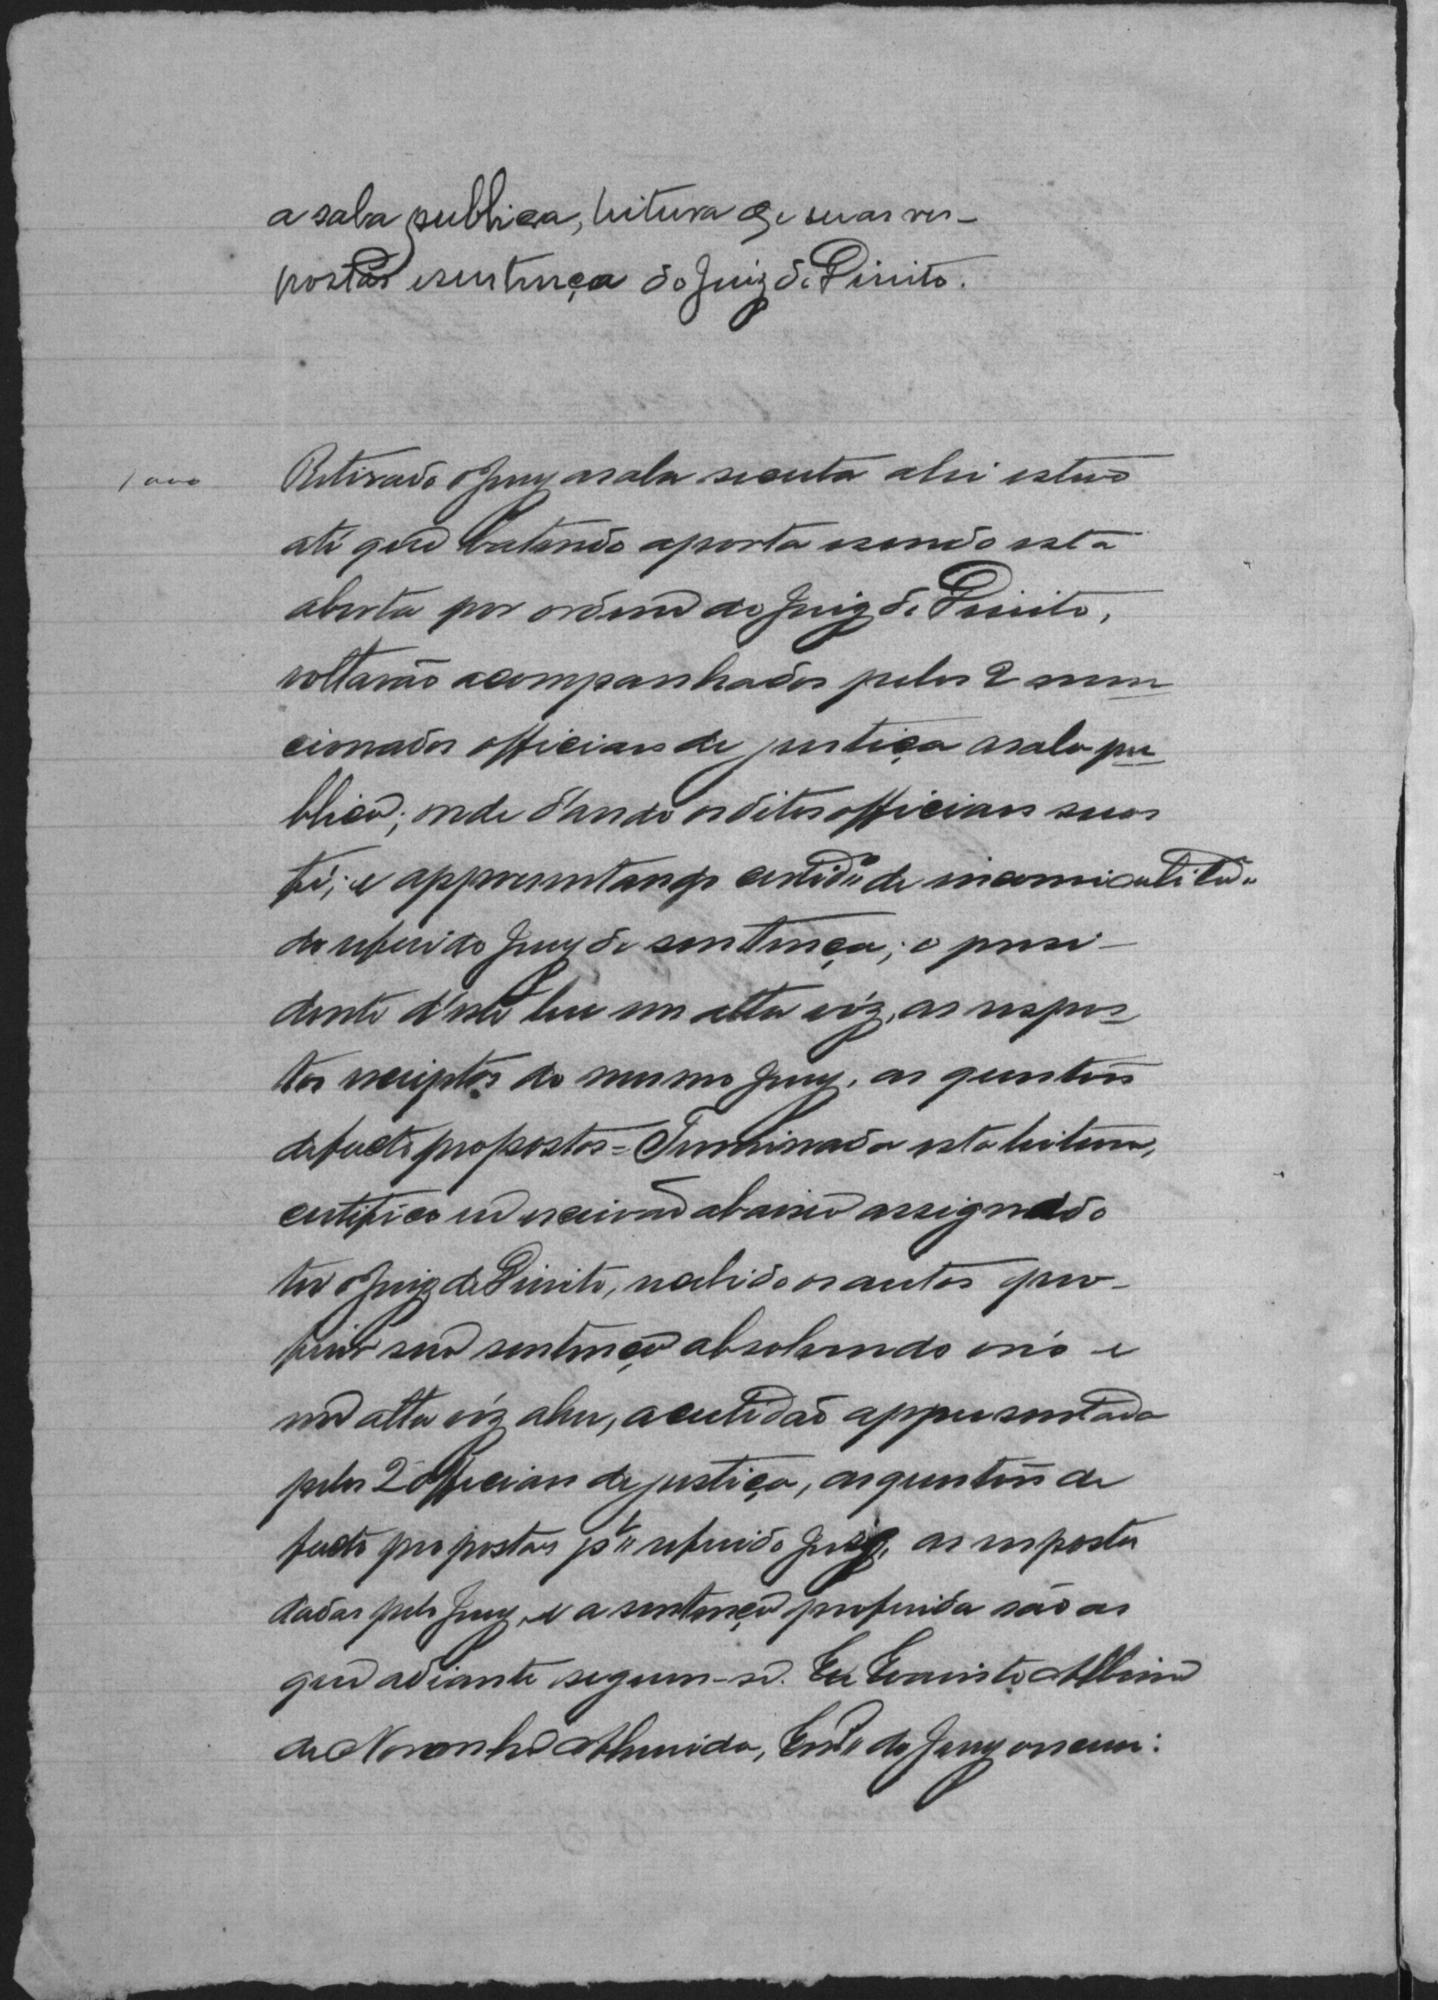 a sala publica, leitura de suas res-
postas e sentença do Juiz de Direito.
1000
Retirado o Jury a sala secreta ahi esteve
até que batendo a porta e sendo esta
aberta por ordem do Juiz de Direito,
voltarão acompanhados pelos 2 men
cionados officiaes de justiça a sala pu
blica; onde dando os ditos officiaes suas
fé; e appresentando certidão de incomunicabilide
do referido Jury de sentença; o presi-
dente d'este leu em alta vóz, as respos
tas escriptas do mesmo Jury, as questões
de facto propostas = Terminada esta leitura,
certifico eu escrivão abaixo assignado
ter o Juiz de Direito, recebido os autos pro-
ferir sua sentença absolvendo o réo e
em alta vóz a leu, a certidão appresentada
pelos 2 officiaes de justiça, as questões de
facto propostas plo referido Juiz, as resposta
dadas pelo Jury, e a sentença proferida são as
que adiante seguem-se. Eu Evaristo Albino
de Noronha Almeida, Escrm do Jury o escrevi: